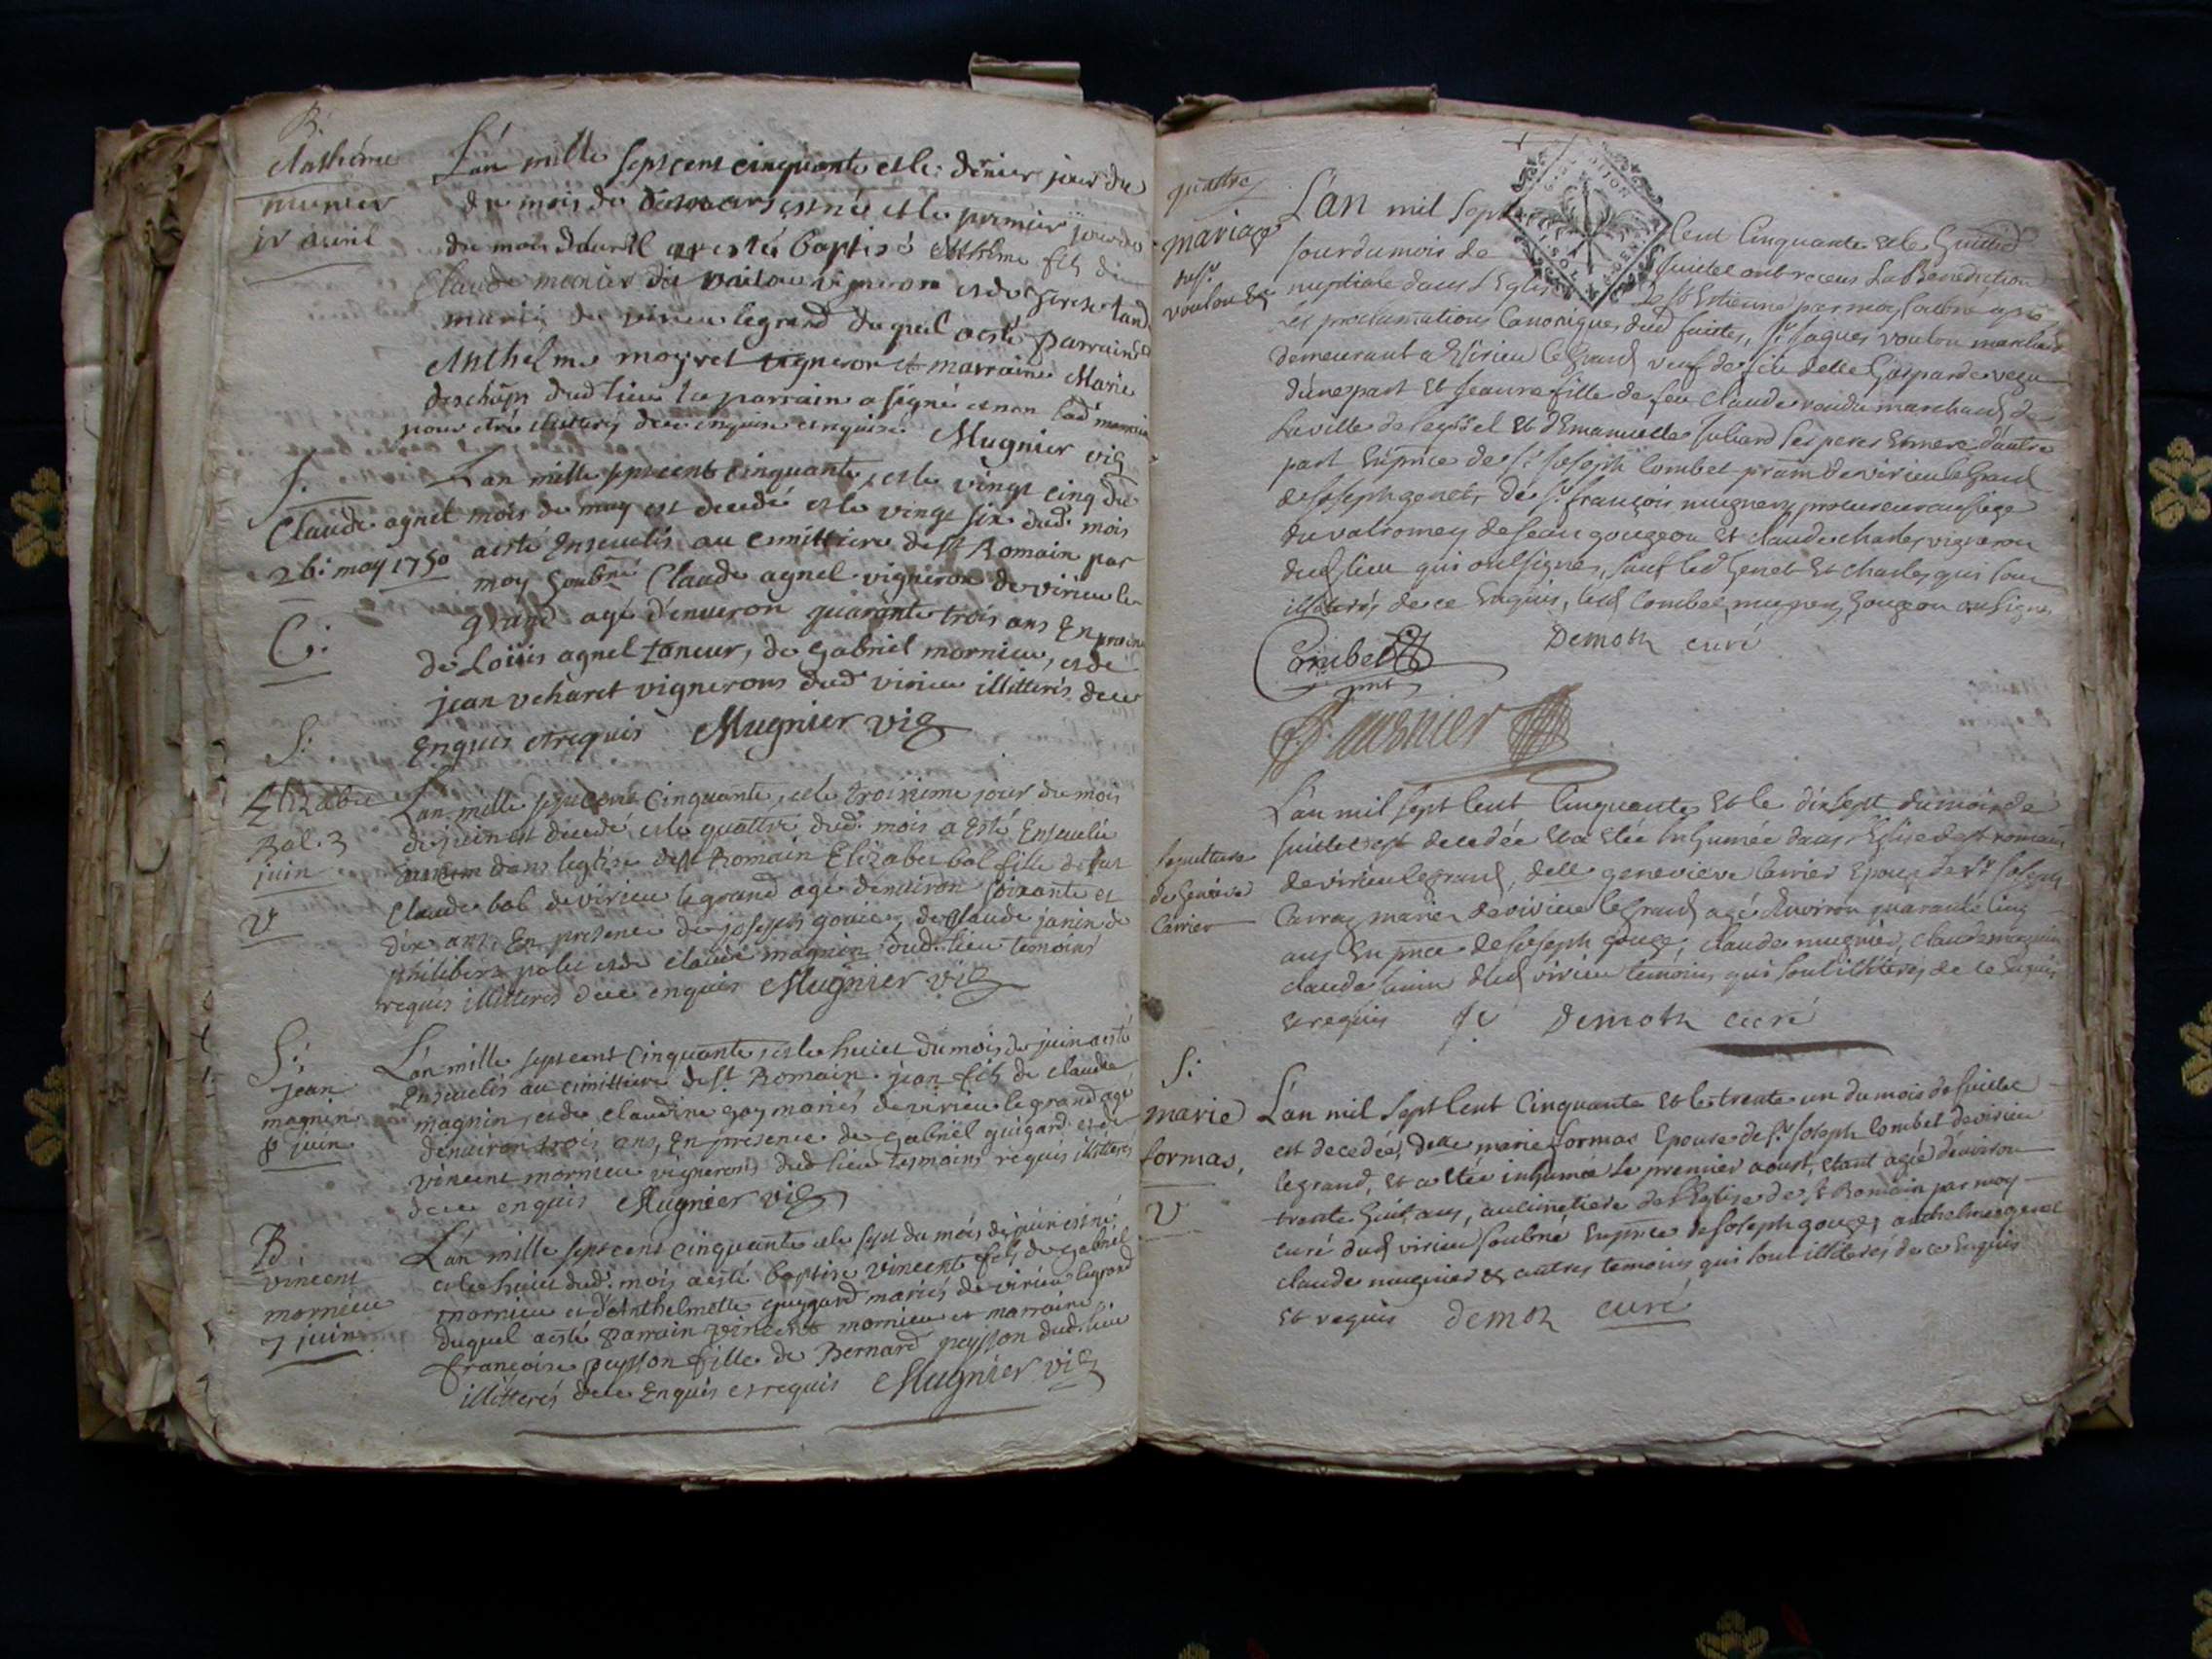 B.
Anthelme
munier
1r avril
L'an mille sept cent cinquante et le dernier jour du
du mois de mars est né et le premier jour du
du mois d'avril a esté baptisé Anthelme fils de
Claude monier vigneron et de
mariés de virieu le grand duquel a esté parrain
Anthelme moyret vigneron et marraine Marie
deschamps dud lieu le parrain a signé et non lad marraine
pour etre illitterés de ce enquise enquise Mugnier vic
S.
Claude agnel
26: may 1750
C:
L'an mille sept cent cinquante, et le vingt cinq du
mois de may est decedé et le vingt six dud: mois
a esté Ensevelis au cimittiere de st Romain par
moy soubné Claude agnel vigneron de virieu le
grand agé d'environ quarante trois ans En presence
de Loüis agnel taneur, de gabriel mornieu, et de
jean veharet vignerons dud virieu illitterés de ce
Enquis et requis Mugnier vic
S:
Elizabet
Bal. 3
juin
V
L'an mille sept cent Cinquante, et le troisieme jour du mois
de juin est decedé, et le quattre dud: mois a Esté Ensevelie
dans leglise de st Romain Elizabet bal fille de feu
Claude bal de virieu le grand agé d'environ soixante et
dix ans. En presence de joseph gouiez, de Claude janin de
philibert polet et de claude magnin dud: lieu temoins
requis illitteres de ce enquis Mugnier vic
S:
jean
magnin
8 juin
L'an mille sept cent Cinquante, et le huict du mois de juin a esté
Ensevelis au cimittiere de st Romain jean fils de claude
magnin, et de claudine goy mariés de virieu le grand agé
d'environ trois ans, En presence de gabriel guigard et de
vincent mornieu vignerons dud lieu tesmoins requis illitterés
de ce enquis Mugnier vic
B
vincent
mornieu
7 juin
L'an mille sept cent cinquante et le sept du mois de juin est né
et le huict dud: mois a esté baptisé vincent fils de gabriel
mornieu et d'Anthelmette guygard mariés de virieu le grand
duquel a esté parrain vincent mornieu et marraine
françoise peysson fille de Bernard peysson dud: lieu
illitterés de ce Enquis et requis Mugnier vic
quattre
mariage
du sr
voulou
L'an mil sept cent Cinquante et le huitie
jour du mois de juillet ont receus la Benediction
nuptiale dans l'Eglise de st Estienne par moy soubné après
les proclamations Canoniques dud faittes, sr jaques voulou marchand
demeurant a Virieu le Grand veuf de delle Gasparde
d'une part et jeanne fille de feu Claude marchand de
la ville de seÿssel et d'Emanuelle juliard ses peres et mere d'autre
part En pnce de sr joseph Combet de virieu le Grand
de joseph genet, de sr françois mugnier procureur au siege
du valromey de jean gougeon et claude charles vigneron
dud lieu qui ont signes, sauf led Genet et charles qui sont
illiterés de ce Enquis, lesd Combet, mugnier, gougeon ont signé
Combet
Demoth curé
Mugnier
sepulture
de Genevieve
Carrier
L'an mil sept cent Cinquante et le dixsept du mois de
juillet est decedée et a etée inhumée dans l'Eglise de st romain
de virieu le grand, delle genevieve Carrier Epouse de sr joseph
Carraz mariez de virieu le Grand agé d'environ quarante cinq
ans En pnce de joseph gouge, claude mugnier, claude
claude janin dud virieu temoins qui sont illiterés de ce Enquis
et requis Demoth curé
S:
marie
formas,
V
L'an mil sept cent Cinquante et le trente un du mois de juillet
est decedée, delle marie formas Epouse de sr joseph Combet de virieu
le grand, et a etée inhumée le premier aoust, etant agée d'environ
trente huit ans, au cimetiere de l'Eglise de st Romain par moy
curé dud virieu soubné En pnce de joseph gouge, anthelme genet
claude mugnier et autres temoins qui sont illiterés de ce Enquis
et requis demoth curé